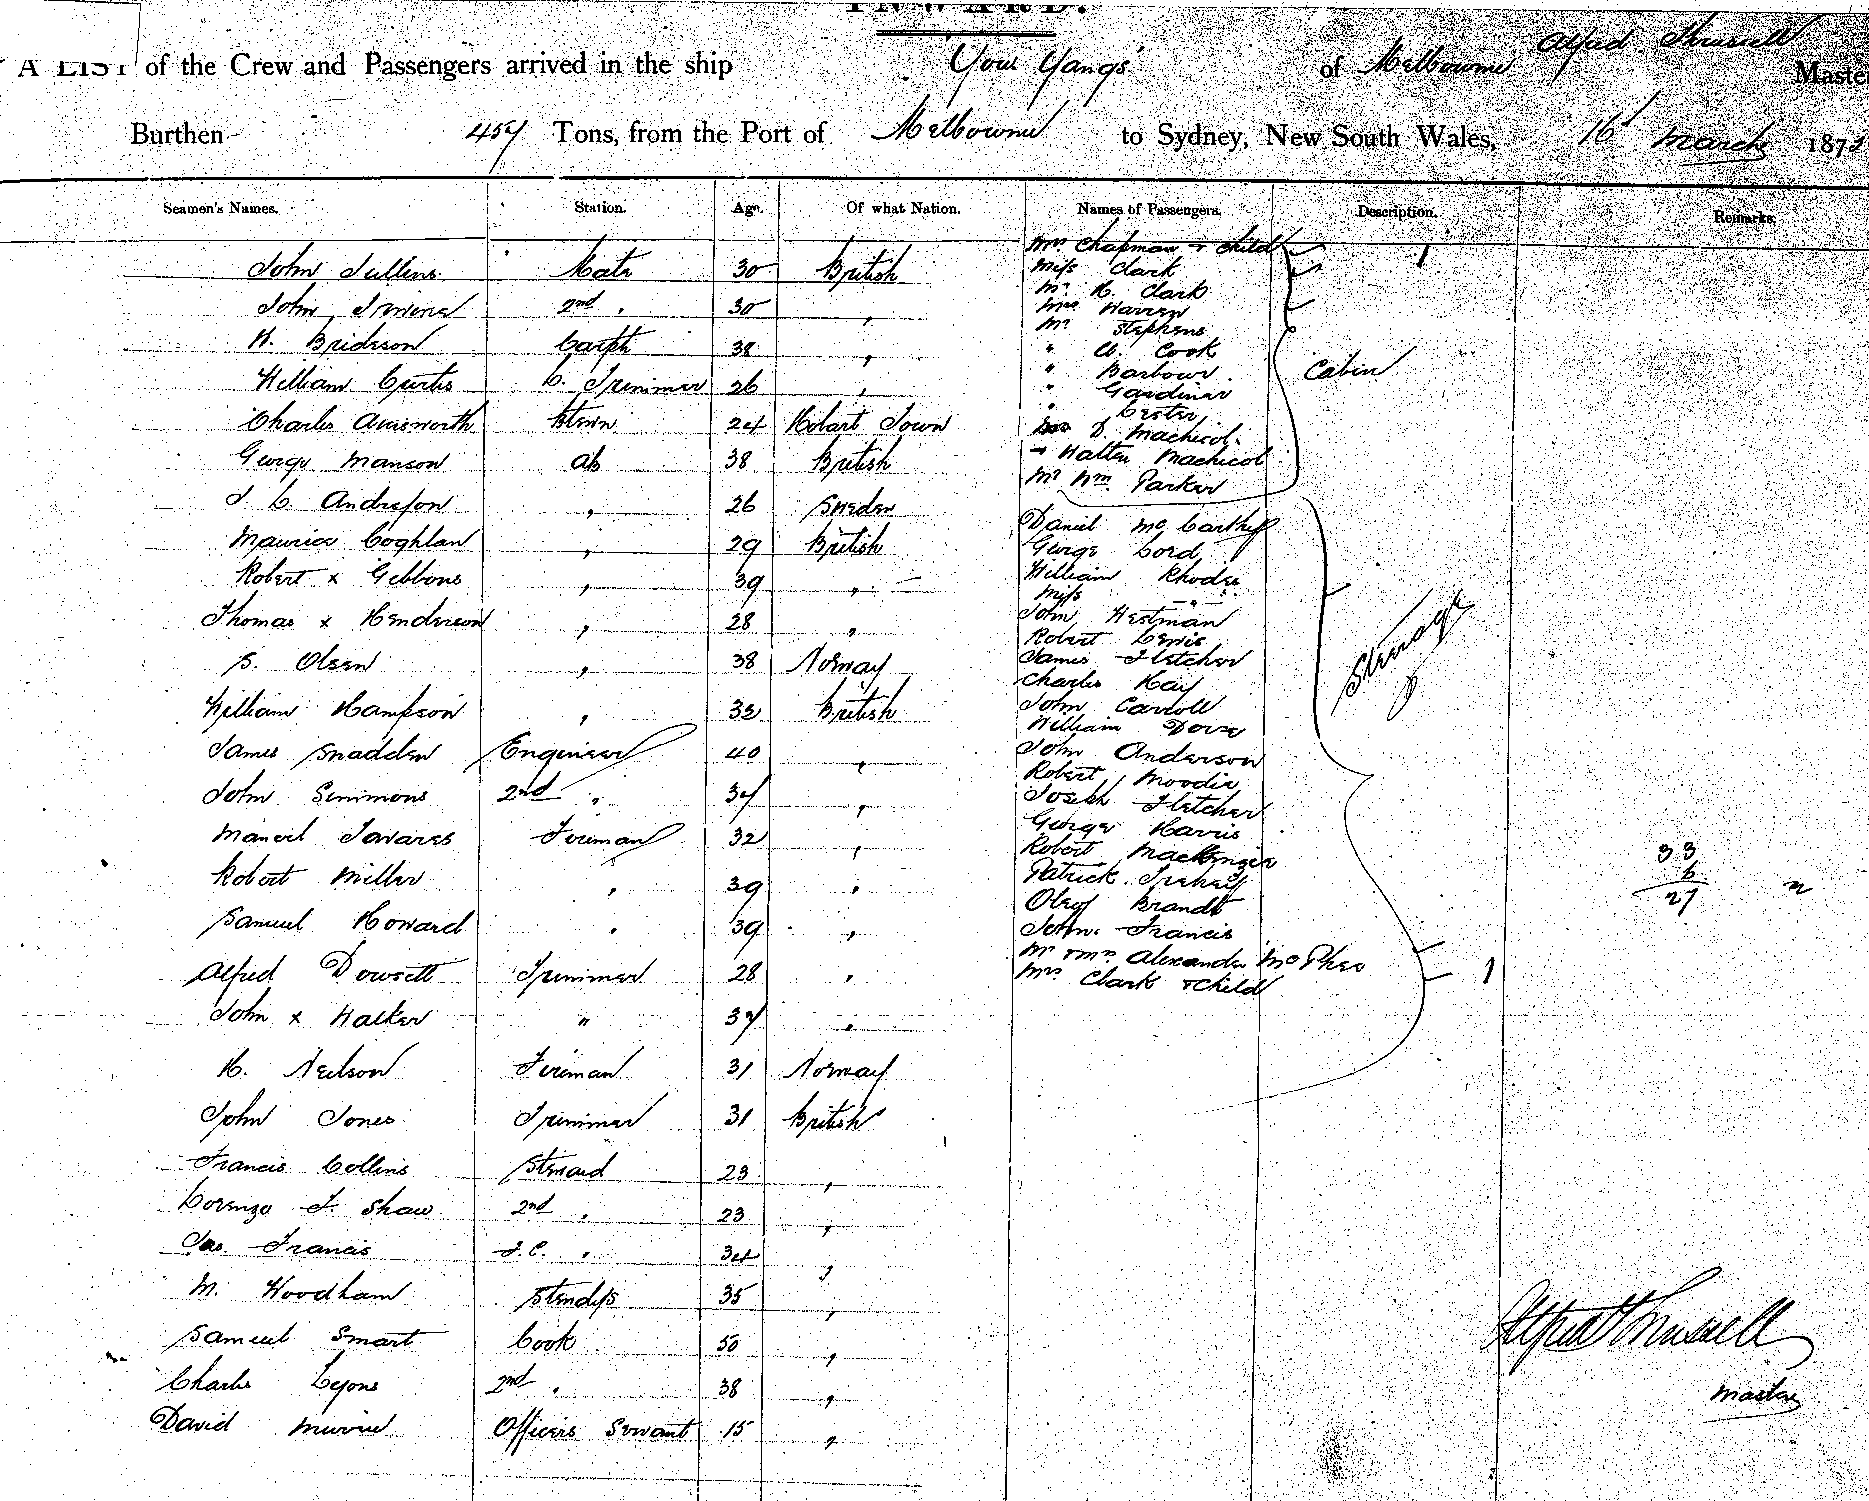 INWARD.
Alfred Trussell
A LIST of the Crew and Passengers arrived in the ship You Yangs of Melbourne Master
Burthen 457 Tons, from the Port of Melbourne to Sydney, New South Wales, 16 March 187
Seamen's Names. Station. Age. Of what Nation. Names of Passengers. Description. Remarks.
Mrs Chapman + Child 1
John Mate 30 British Miss Clark
Mr H. Clark
John 2nd " 30 " Mrs Warren
Mr Stephens
H. Brideson Carptr 38 " " Cook
" Barbour Cabin
William Curtis L. Trimmer 26 " " Gardiner
" Lester
Charles Ainsworth 24 Hobart Town D. Machicol
George Manson ab 38 British + Walter Machicol
Mr Wm Parker
J. C. Andresson " 26 Sweden
Daniel McCarthy
Maurice Coghlan " 29 British George Lord
Robert x Gibbons " 39 " William Rhodes
Miss "
Thomas x Henderson " 28 " John Westman
Robert Lewis
S. Olsen " 38 Norway James Fletcher Steerage
Charles Hay
William Hampson " 32 British John Carroll
William Dove
James Snadden Engineer 40 " John Anderson
Robert Moodie
John Simmons 2nd " 37 " Joseph Fletcher
George Harris
Manoel Tavares Fireman 32 " Robert MacKenzie 33
Robert Miller " 39 " Patrick 6
Olef Brandt 27
Samuel Howard " 39 " John Francis
Mr + Mrs Alexander McPhee
Alfred Dowsett Trimmer 28 " Mrs Clark + Child 1
John x Walker " 37 "
H. Neilson Fireman 31 Norway
John Jones Trimmer 31 British
Francis Collins Steward 23 "
Lorenzo F. Shaw 2nd " 23 "
Jas. Francis F.C. " 34 "
M. Woodham Stewdss 35 "
Samuel Smart Cook 50 "
Alfred Trussell
Charles Lyons 2nd " 38 "
Master
David Murrie Officers Servant 15 "